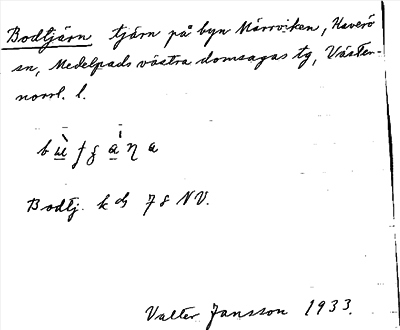 Bodtjärn tjärn på byn Märrviken, Haverö
sn, Medelpads västra domsagas tg, Väster-
norrl. l.
Bodtj. k 78 NV.
Valter Jansson 1933.